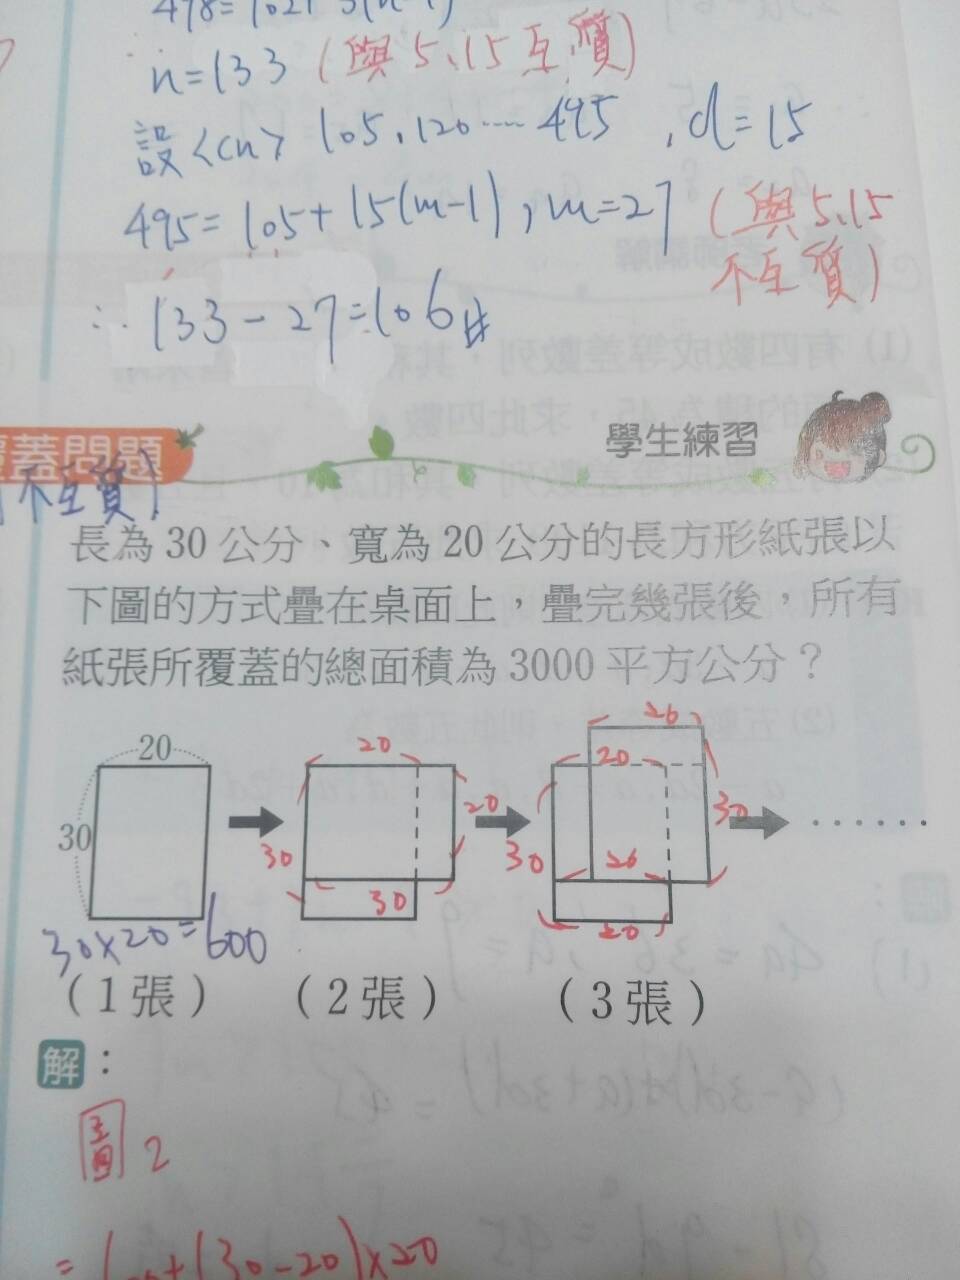 498=102+3(n-1)
n=133 (與5、15互質)
設<cn> 105、120……495 , d=15
495=105+15(m-1), m=27 (與5、15
不互質)
∴133-27=106#
覆蓋問題
學生練習
不互質)
長為 30 公分、寬為 20 公分的長方形紙張以
下圖的方式疊在桌面上，疊完幾張後，所有
紙張所覆蓋的總面積為 3000 平方公分？
20
30
30×20=600
(1張)
20
20
30
30
(2張)
20
20
30
30
20
20
(3張)
……
解：
圖2
+(30-20)×20